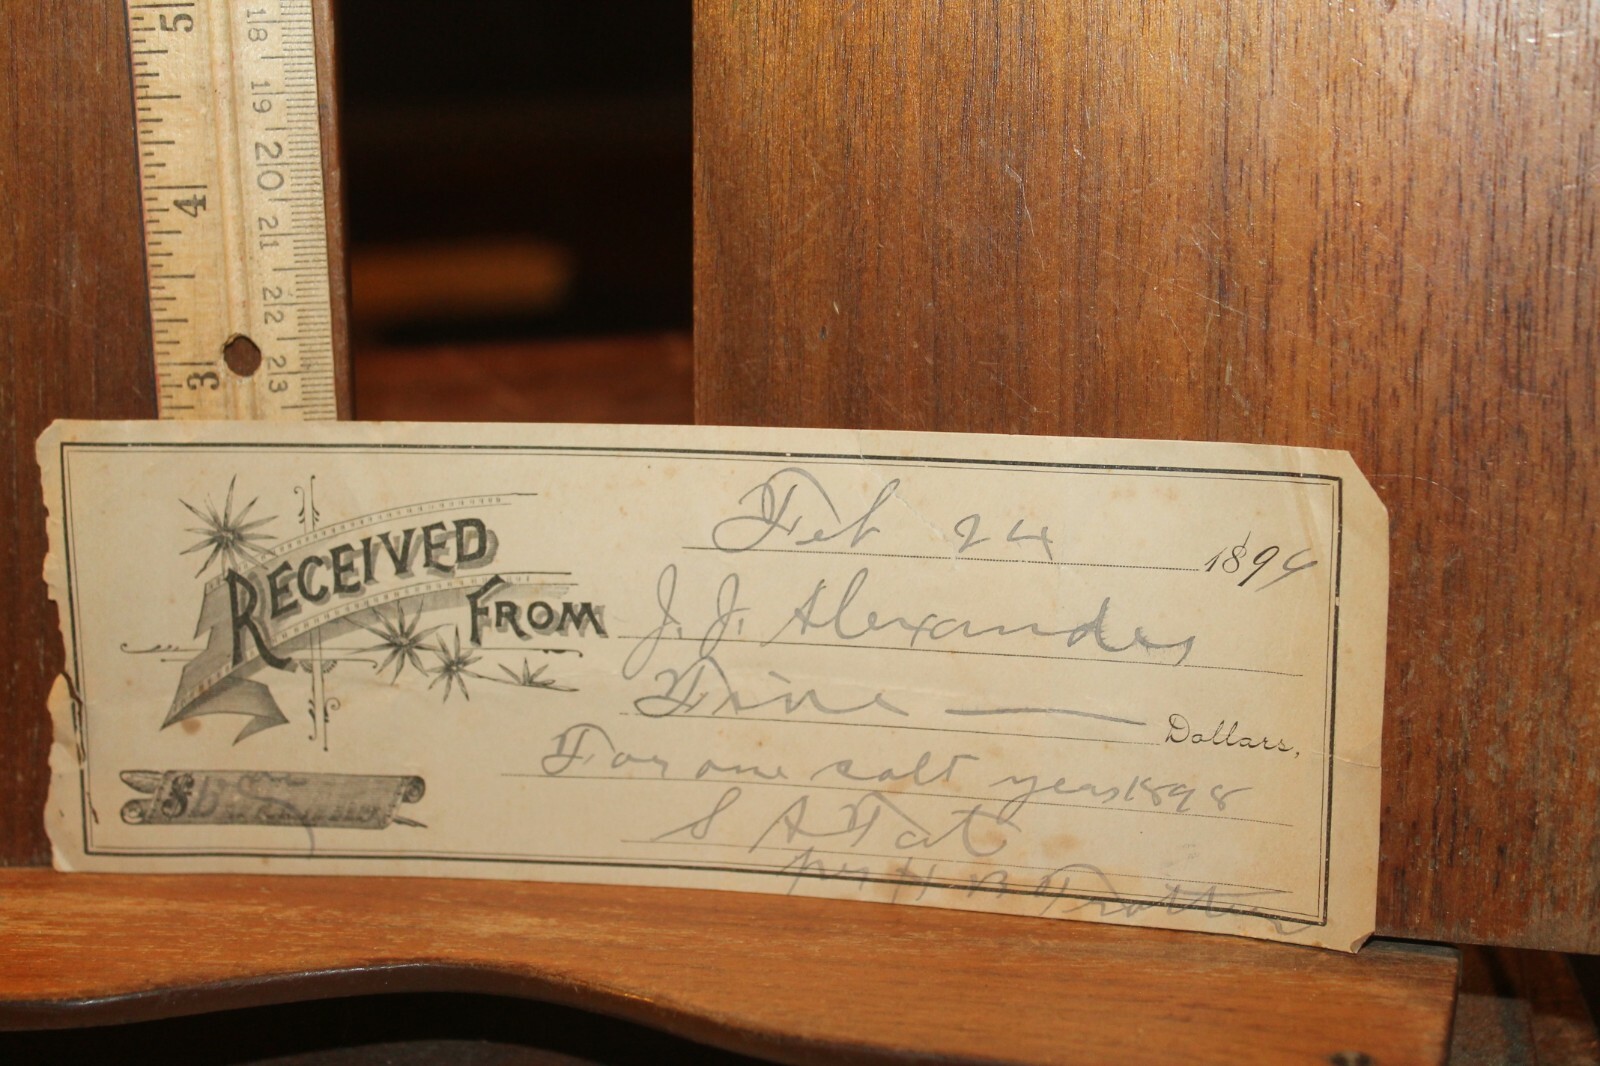 5
18
19
20
4
21
22
3
23
RECEIVED
FROM
Feb 24 1899
J. J. Alexander
Five — Dollars,
For one salt year 1898
S A Tate
per H B Trotter
$